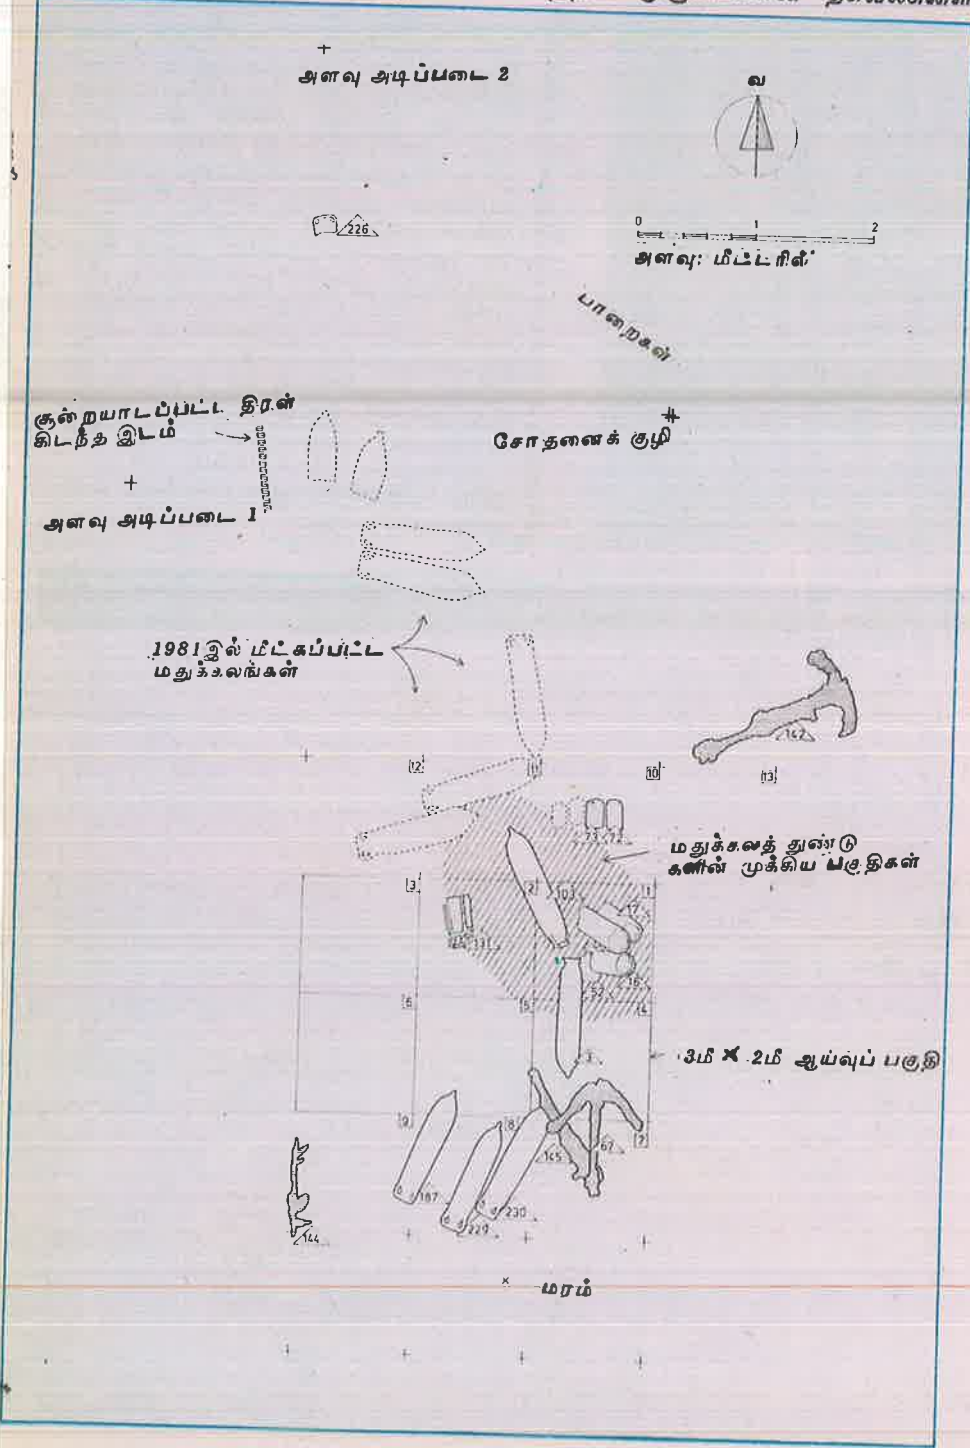 அளவு அடிப்படை 2
வ
226
0 1 2
அளவு: மீட்டரில்
பாறைகள்
சூறையாடப்பட்ட திரள்
கிடந்த இடம்
சோதனைக் குழி
அளவு அடிப்படை 1
1981இல் மீட்கப்பட்ட
மதுக்கலங்கள்
142
12 11 10 13
73 72
மதுக்கலத் துண்டு
களின் முக்கிய பகுதிகள்
3 2 103 1
17
131
16
52
6 5 4
3
3மீ × 2மீ ஆய்வுப் பகுதி
9 8 7
145 67
187
230
229
144
மரம்